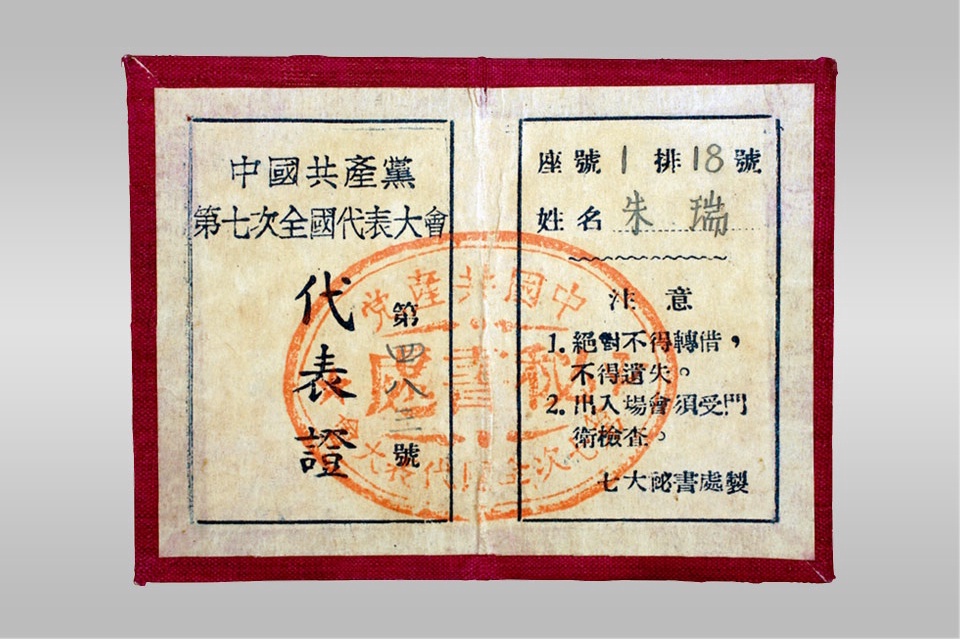 中國共產黨
第七次全國代表大會
代表證
第四八三號
座號1排18號
姓名朱瑞
注意
1. 絕對不得轉借，
不得遺失。
2. 出入場會須受門
衛檢查。
七大祕書處製
中国共産党
祕書處